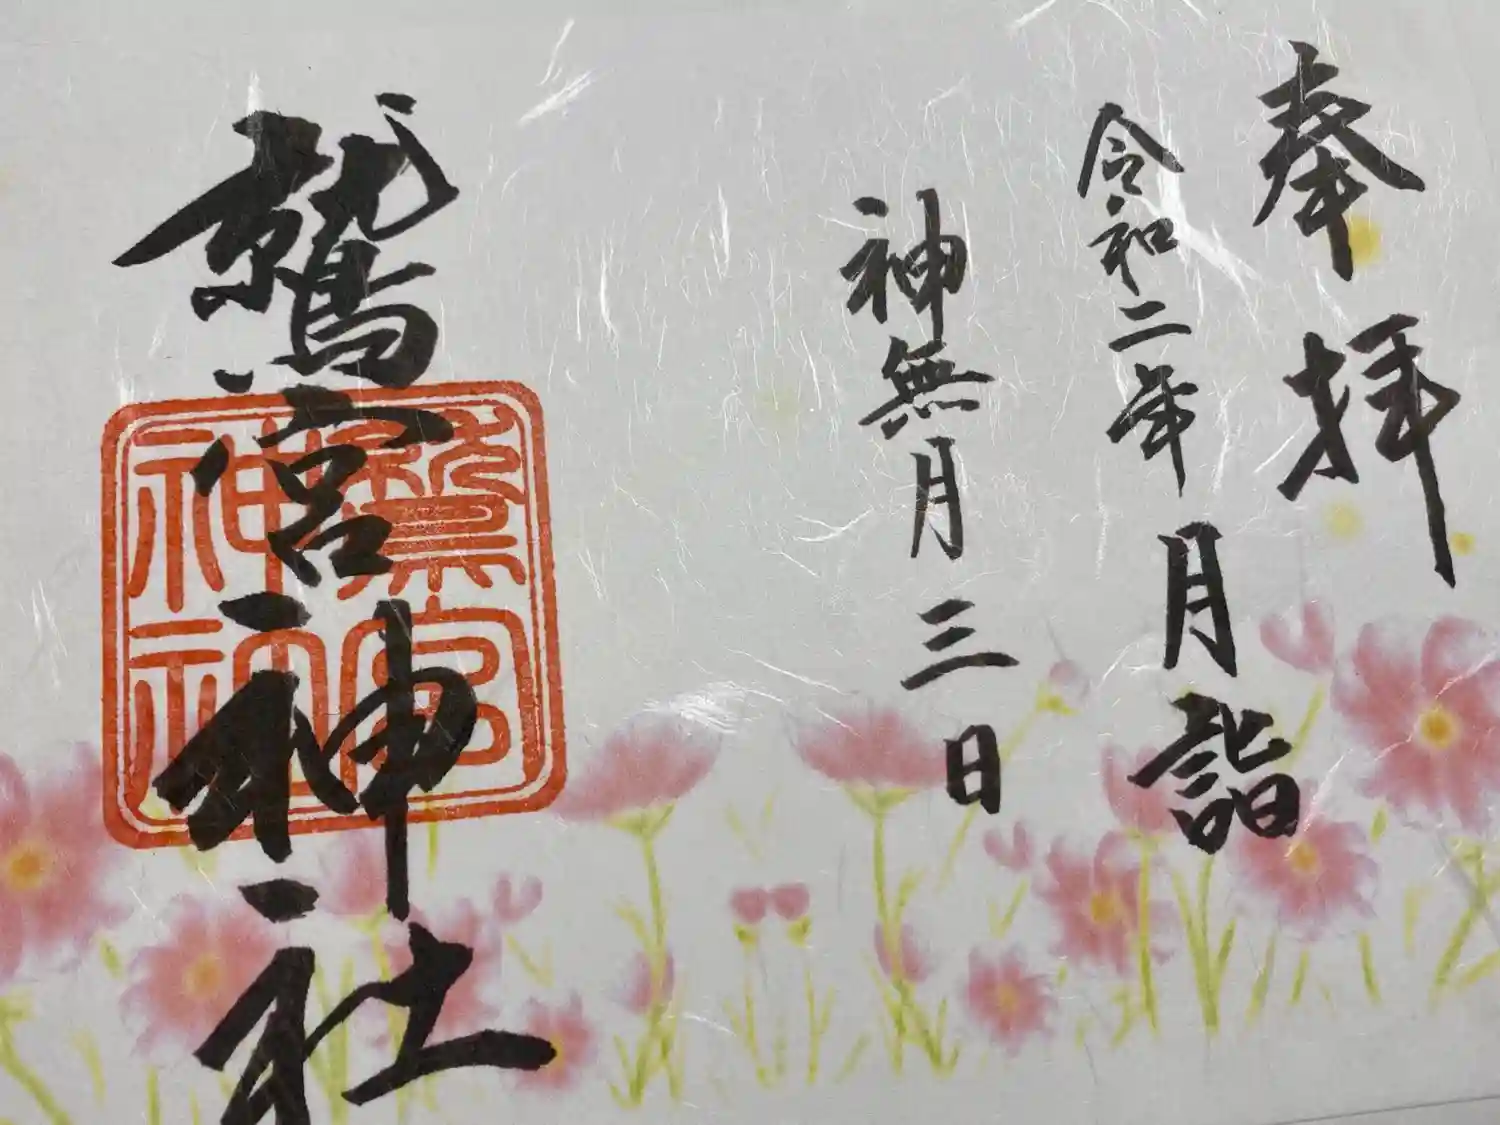 奉拝
令和二年
月詣
神無月三日
鷲宮神社
鷲宮神社